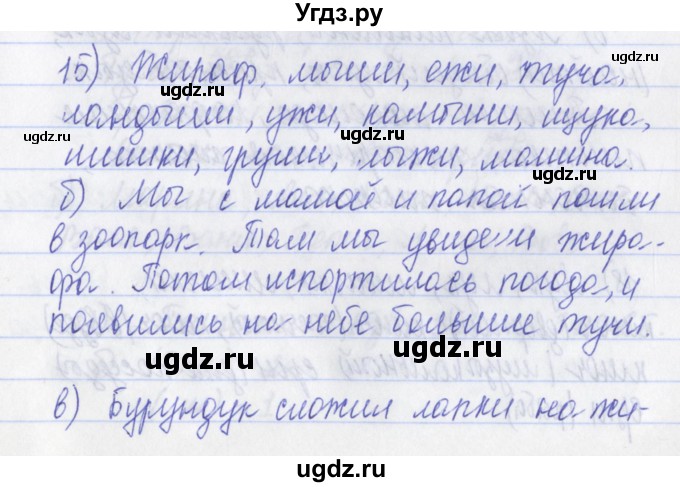 Угдз.ру
15) Жираф, мыши, ежи, туча,
ландыши, ужи, камыши, щука,
шишки, груши, лыжи, машина.
б) Мы с мамой и папой пошли
в зоопарк. Там мы увидели жира-
фа. Потом испортилась погода, и
появились на небе большие тучи.
в) Бурундук сложил лапки на жи-
ugdz.ru
ugdz.ru
ugdz.ru
ugdz.ru
ugdz.ru
ugdz.ru
ugdz.ru
ugdz.ru
ugdz.ru
ugdz.ru